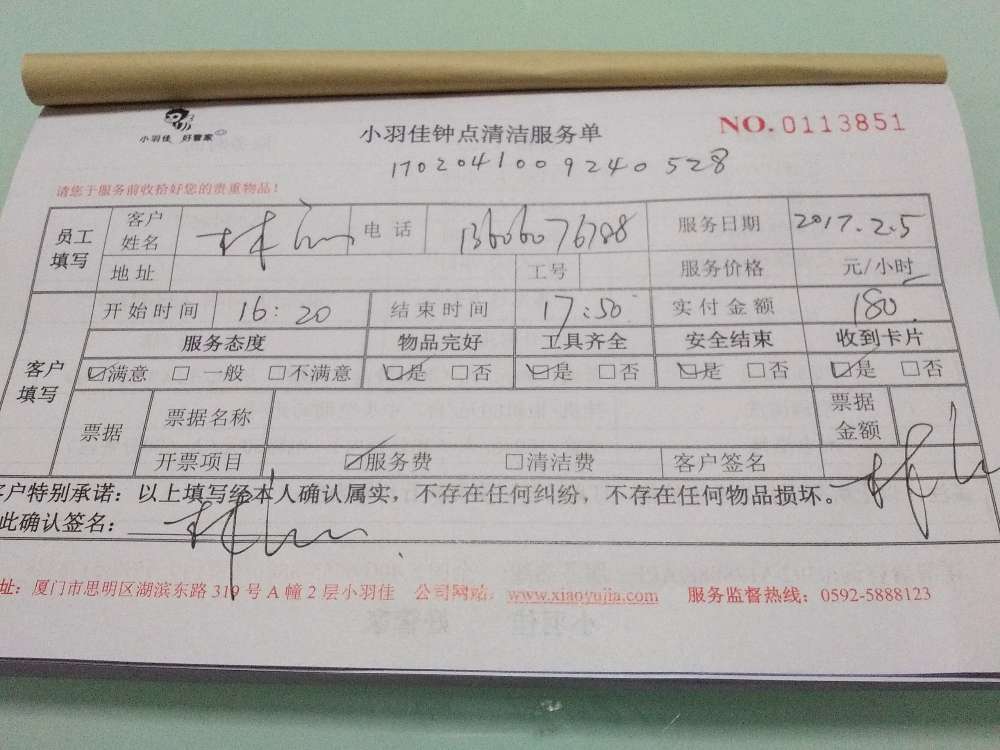 小羽佳 好管家
小羽佳钟点清洁服务单
NO.0113851
1702041009240528
请您于服务前收拾好您的贵重物品！
员工填写 客户姓名 林 电话 13606076788 服务日期 2017.2.5
地址 工号 服务价格 元/小时
客户填写 开始时间 16:20 结束时间 17:50 实付金额 180
服务态度 物品完好 工具齐全 安全结束 收到卡片
☑满意 □一般 □不满意 ☑是 □否 ☑是 □否 ☑是 □否 ☑是 □否
票据 票据名称 票据金额
开票项目 ☑服务费 □清洁费 客户签名 林
客户特别承诺：以上填写经本人确认属实，不存在任何纠纷，不存在任何物品损坏。
此确认签名： 林
址：厦门市思明区湖滨东路319号A幢2层小羽佳 公司网站：www.xiaoyujia.com 服务监督热线：0592-5888123